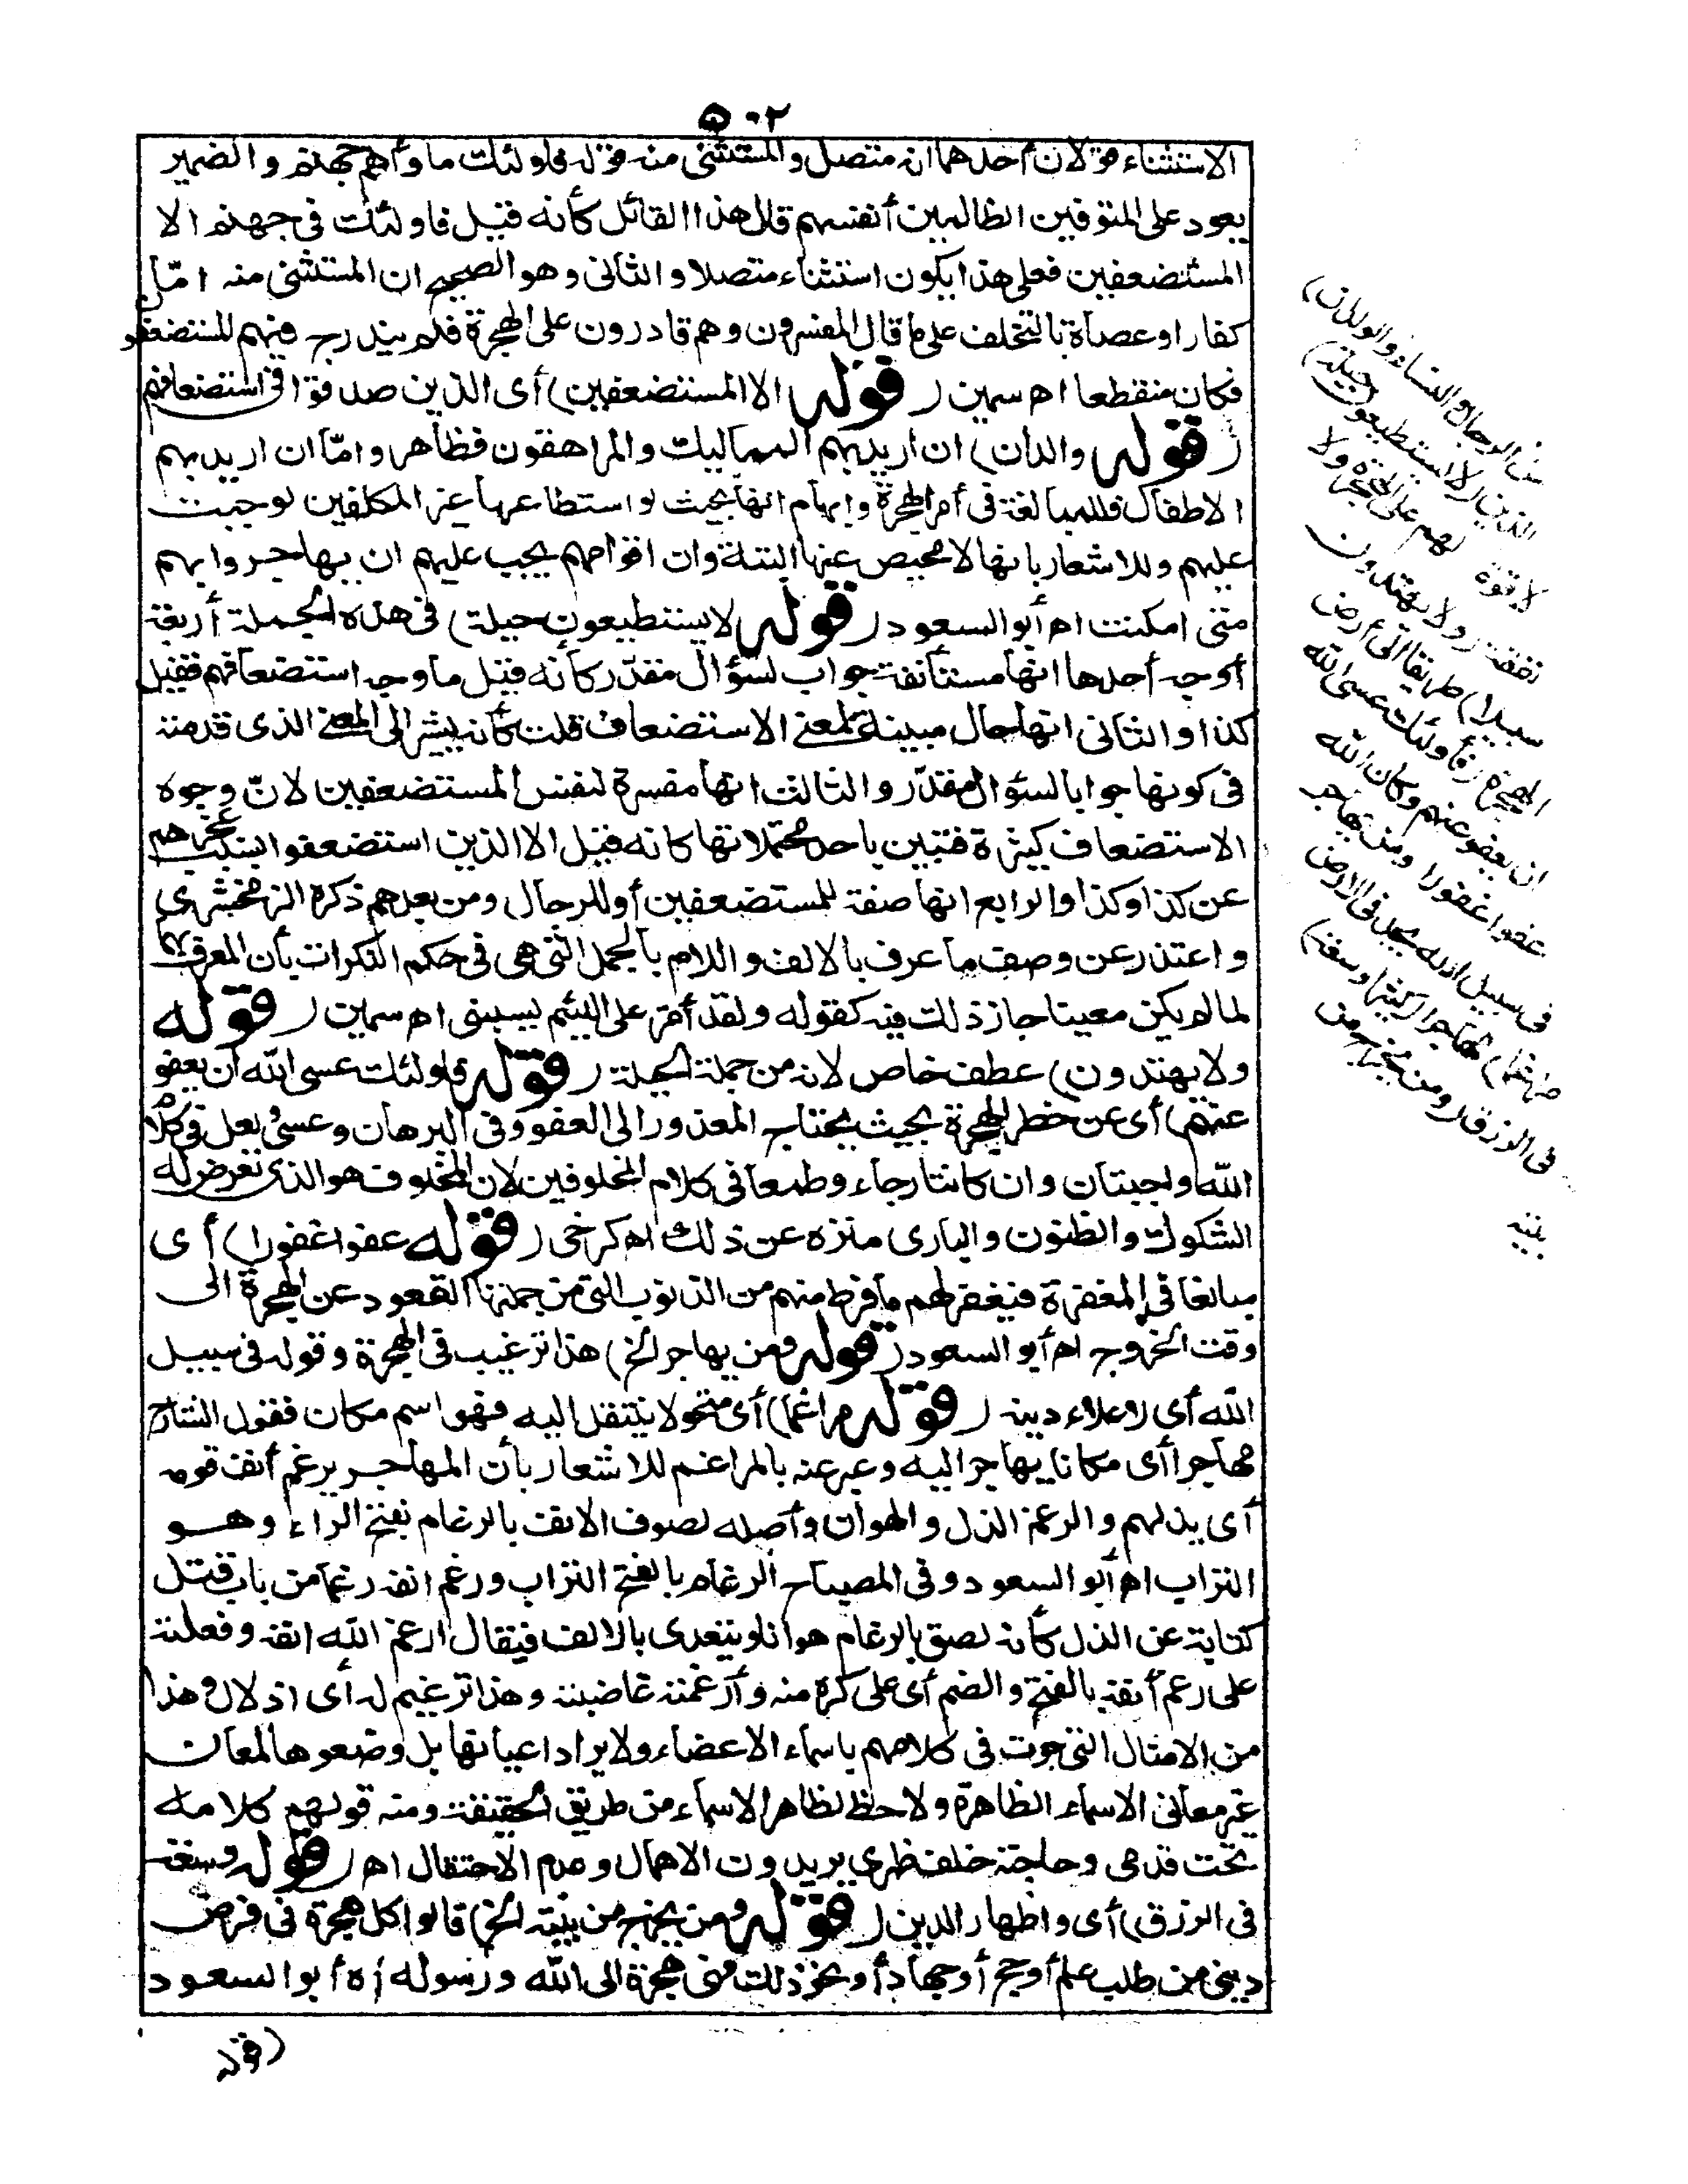 ٥٠٢
الاستثناء قولان أحدهما انه متصل والمستثنى منه قوله فاولئك مأواهم جهنم والضمير
يعود على المتوفين الظالمين أنفسهم قال هذا القائل كأنه قيل فاولئك فى جهنم الا
المستضعفين فعلى هذا يكون استثناء متصلا والثانى وهو الصحيح ان المستثنى منه امّا
كفار او عصاة بالتخلف على ما قال المفسرون وهم قادرون على الهجرة فلم يندرج فيهم المستضعفو
فكان منقطعا اه سمين (قوله الا المستضعفين) أى الذين صدقوا فى استضعافهم
(قوله والدان) ان اريد بهم المماليك والمراهقون فظاهر وامّا ان اريد بهم
الاطفال فللمبالغة فى أمر الهجرة وايهام انها بحيث لو استطاعها غير المكلفين لوجبت
عليهم وللاشعار بانها لا محيص عنها البتة وان اقوامهم يجب عليهم ان يهاجروا بهم
متى امكنت اه أبو السعود (قوله لا يستطيعون حيلة) فى هذه الجملة أربعة
أوجه أحدها انها مستأنفة جواب لسؤال مقدّر كأنه قيل ما وجه استضعافهم فقيل
كذا والثانى انها حال مبينة لمعنى الاستضعاف قلت كأنه يشير الى المعنى الذى قدمته
فى كونها جوابا لسؤال مقدّر والثالث انها مفسرة لنفس المستضعفين لانّ وجوه
الاستضعاف كثيرة فتبين باحد محتملاتها كانه قيل الا الذين استضعفوا بسبب عجزهم
عن كذا وكذا والرابع انها صفة للمستضعفين أو للرجال ومن بعدهم ذكره الزمخشرى
واعتذر عن وصف ما عرف بالالف واللام بالجمل التى هى فى حكم النكرات بأن المعرف بهما
لما لم يكن معينا جاز ذلك فيه كقوله ولقد أمر على اللئيم يسبنى اه سمين (قوله
ولا يهتدون) عطف خاص لانه من جملة الحيلة (قوله فاولئك عسى الله أن يعفو
عنهم) أى عن خطر الهجرة بحيث يحتاج المعذور الى العفو وفى البرهان وعسى ولعل فى كلام
الله واجبتان وان كانتا رجاء وطمعا فى كلام المخلوقين لان المخلوق هو الذى تعرض له
الشكوك والظنون والبارى منزه عن ذلك اه كرخى (قوله عفوا غفورا) أى
مبالغا فى المغفرة فيغفر لهم ما فرط منهم من الذنوب التى من جملتها القعود عن الهجرة الى
وقت الخروج اه أبو السعود (قوله ومن يهاجر الخ) هذا ترغيب فى الهجرة وقوله فى سبيل
الله أى لاعلاء دينه (قوله مراغما) أى متحولا ينتقل اليه فهو اسم مكان فقول الشارح
مهاجرا أى مكانا يهاجر اليه وعبر عنه بالمراغم للاشعار بأن المهاجر يرغم أنف قومه
أى يذلهم والرغم الذل والهوان وأصله لصوق الانف بالرغام بفتح الراء وهو
التراب اه أبو السعود وفى المصباح الرغام بالفتح التراب ورغم انفه رغما من باب قتل
كناية عن الذل كأنه لصق بالرغام هوانا ويتعدى بالالف فيقال ارغم الله انفه وفعلته
على رغم أنفه بالفتح والضم أى على كره منه وأرغمته غاضبته وهذا ترغيم له أى اذلال وهذا
من الامثال التى جرت فى كلامهم باسماء الاعضاء ولا يراد اعيانها بل وضعوها لمعان
غير معانى الاسماء الظاهرة ولا حظ لظاهر الاسماء من طريق الحقيقة ومنه قولهم كلامه
تحت قدمى وحاجته خلف ظهرى يريدون الاهمال وعدم الاحتفال اه (قوله وسعة
فى الرزق) أى واظهار الدين (قوله ومن يخرج من بيته الخ) قالوا كل هجرة فى غرض
دينى من طلب علم أو حج أو جهاد أو نحو ذلك فهى هجرة الى الله ورسوله اه أبو السعود
(قوله
من الرجال والنساء والولدان)
الذين (لا يستطيعون حيلة)
لا قوة لهم على الهجرة ولا
نفقة (ولا يهتدون
سبيلا) طريقا الى أرض
الهجرة (فأولئك عسى الله
ان يعفو عنهم وكان الله
عفوا غفورا ومن يهاجر
فى سبيل الله يجد فى الارض
مراغما) مهاجرا (كثيرا وسعة)
فى الرزق (ومن يخرج من
بيته